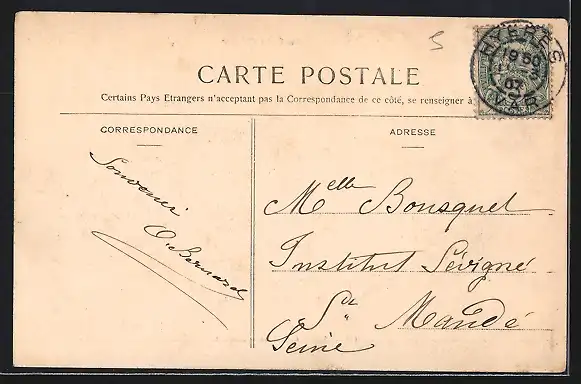 5
HYERES
VAR
CARTE POSTALE
Certains Pays Etrangers n'acceptant pas la Correspondance de ce côté, se renseigner à
CORRESPONDANCE
Souvenir
O. Bernard
ADRESSE
Melle Bousquet
Institut Sévigné
St Mandé
Seine